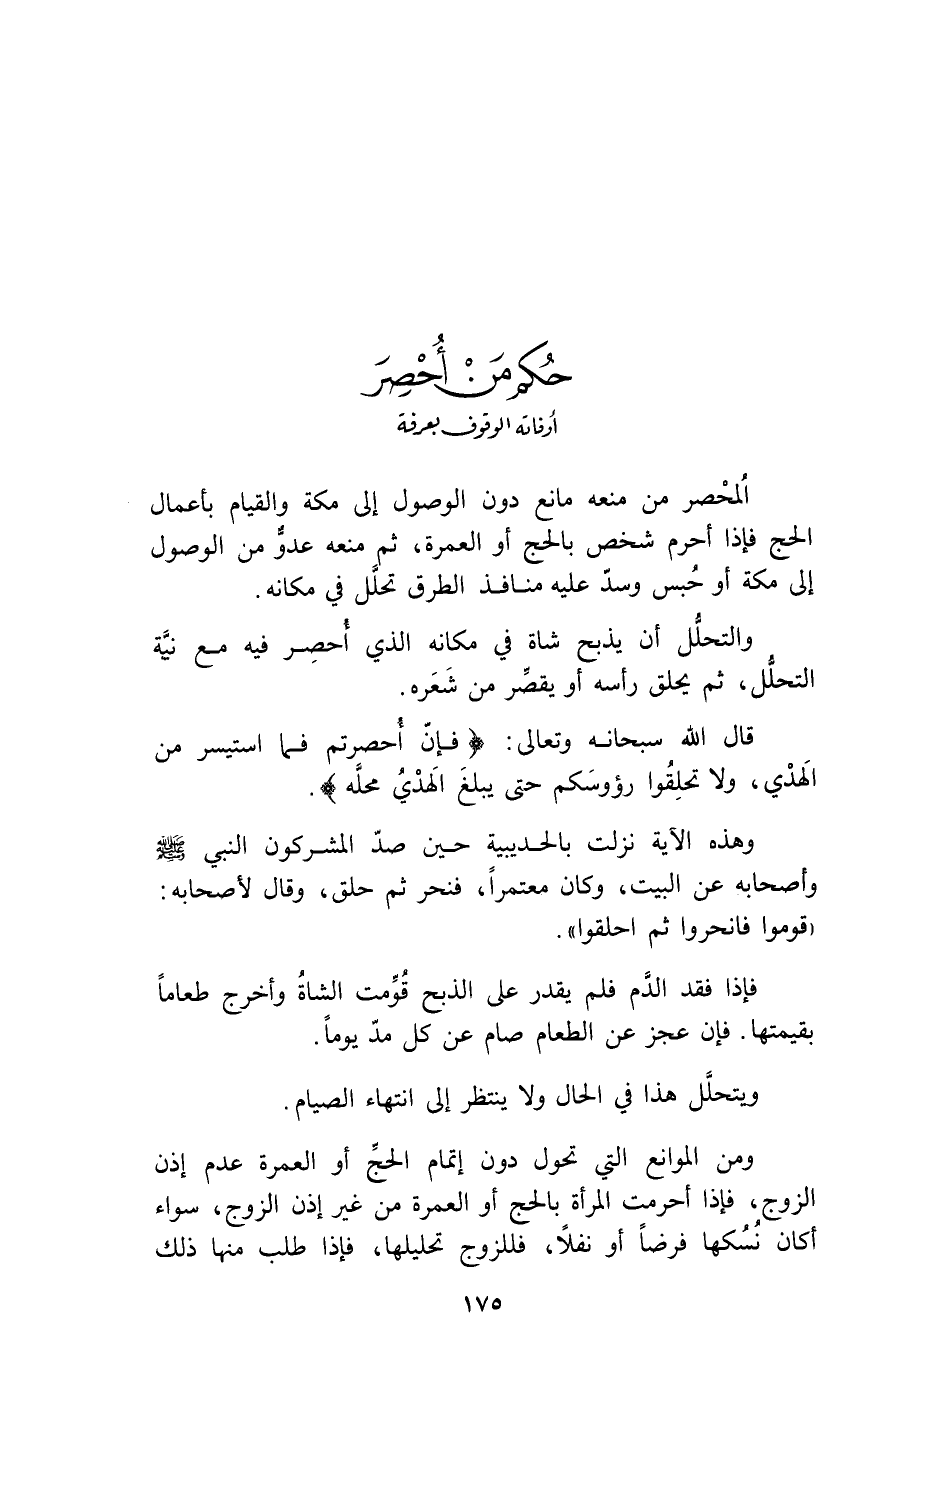 حُكم مَنْ أُحْصِرَ
أو فاته الوقوف بعرفة
اُلمْحصر من منعه مانع دون الوصول إلى مكة والقيام بأعمال
الحج فإذا أحرم شخص بالحج أو العمرة، ثم منعه عدوٌّ من الوصول
إلى مكة أو حُبس وسدّ عليه منافذ الطرق تحلَّل في مكانه.
والتحلُّل أن يذبح شاة في مكانه الذي أُحصِر فيه مع نيَّة
التحلُّل، ثم يحلق رأسه أو يقصِّر من شَعَره.
قال الله سبحانه وتعالى: ﴿ فإنّ أُحصرتم فما استيسر من
الَهدْي، ولا تحلِقُوا رؤوسَكم حتى يبلغَ الَهدْيُ محلَّه ﴾.
وهذه الآية نزلت بالحديبية حين صدّ المشركون النبي ﷺ
وأصحابه عن البيت، وكان معتمراً، فنحر ثم حلق، وقال لأصحابه:
«قوموا فانحروا ثم احلقوا».
فإذا فقد الدَّم فلم يقدر على الذبح قُوِّمت الشاةُ وأخرج طعاماً
بقيمتها. فإن عجز عن الطعام صام عن كل مدّ يوماً.
ويتحلَّل هذا في الحال ولا ينتظر إلى انتهاء الصيام.
ومن الموانع التي تحول دون إتمام الحجِّ أو العمرة عدم إذن
الزوج، فإذا أحرمت المرأة بالحج أو العمرة من غير إذن الزوج، سواء
أكان نُسُكها فرضاً أو نفلًا، فللزوج تحليلها، فإذا طلب منها ذلك
١٧٥